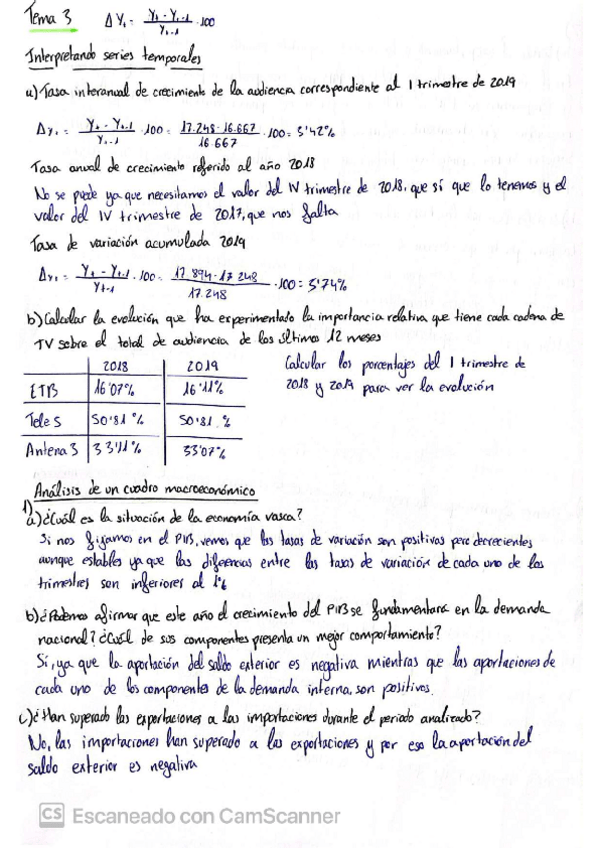 Tema 3 ΔYt = (Yt - Yt-1) / Yt-1 · 100
Interpretando series temporales
a) Tasa interanual de crecimiento de la audiencia correspondiente al I trimestre de 2019
Δyt = (Yt - Yt-1) / Yt-1 · 100 = (17.248 - 16.667) / 16.667 · 100 = 3'42%
Tasa anual de crecimiento referido al año 2018
No se puede ya que necesitamos el valor del IV trimestre de 2018, que sí que lo tenemos y el
valor del IV trimestre de 2017, que nos falta
Tasa de variación acumulada 2019
Δyt = (Yt - Yt-1) / Yt-1 · 100 = (17.894 - 17 248) / 17.248 · 100 = 3'74%
b) Calcular la evolución que ha experimentado la importancia relativa que tiene cada cadena de
TV sobre el total de audiencia de los últimos 12 meses
2018 2019
ETB 16'07% 16'11%
Tele 5 50'81% 50'81.%
Antena 3 33'11% 33'07%
Calcular los porcentajes del I trimestre de
2018 y 2019 para ver la evolución
Análisis de un cuadro macroeconómico
1)
a) ¿Cuál es la situación de la economía vasca?
Si nos fijamos en el PIB, vemos que las tasas de variación son positivas pero decrecientes
aunque estables ya que las diferencias entre las tasas de variación de cada uno de los
trimestres son inferiores al 1%
b) ¿Podemos afirmar que este año el crecimiento del PIB se fundamentará en la demanda
nacional? ¿Cuál de sus componentes presenta un mejor comportamiento?
Sí, ya que la aportación del saldo exterior es negativa mientras que las aportaciones de
cada uno de los componentes de la demanda interna, son positivos.
c) ¿Han superado las exportaciones a las importaciones durante el periodo analizado?
No, las importaciones han superado a las exportaciones y por eso la aportación del
saldo exterior es negativa
CS Escaneado con CamScanner